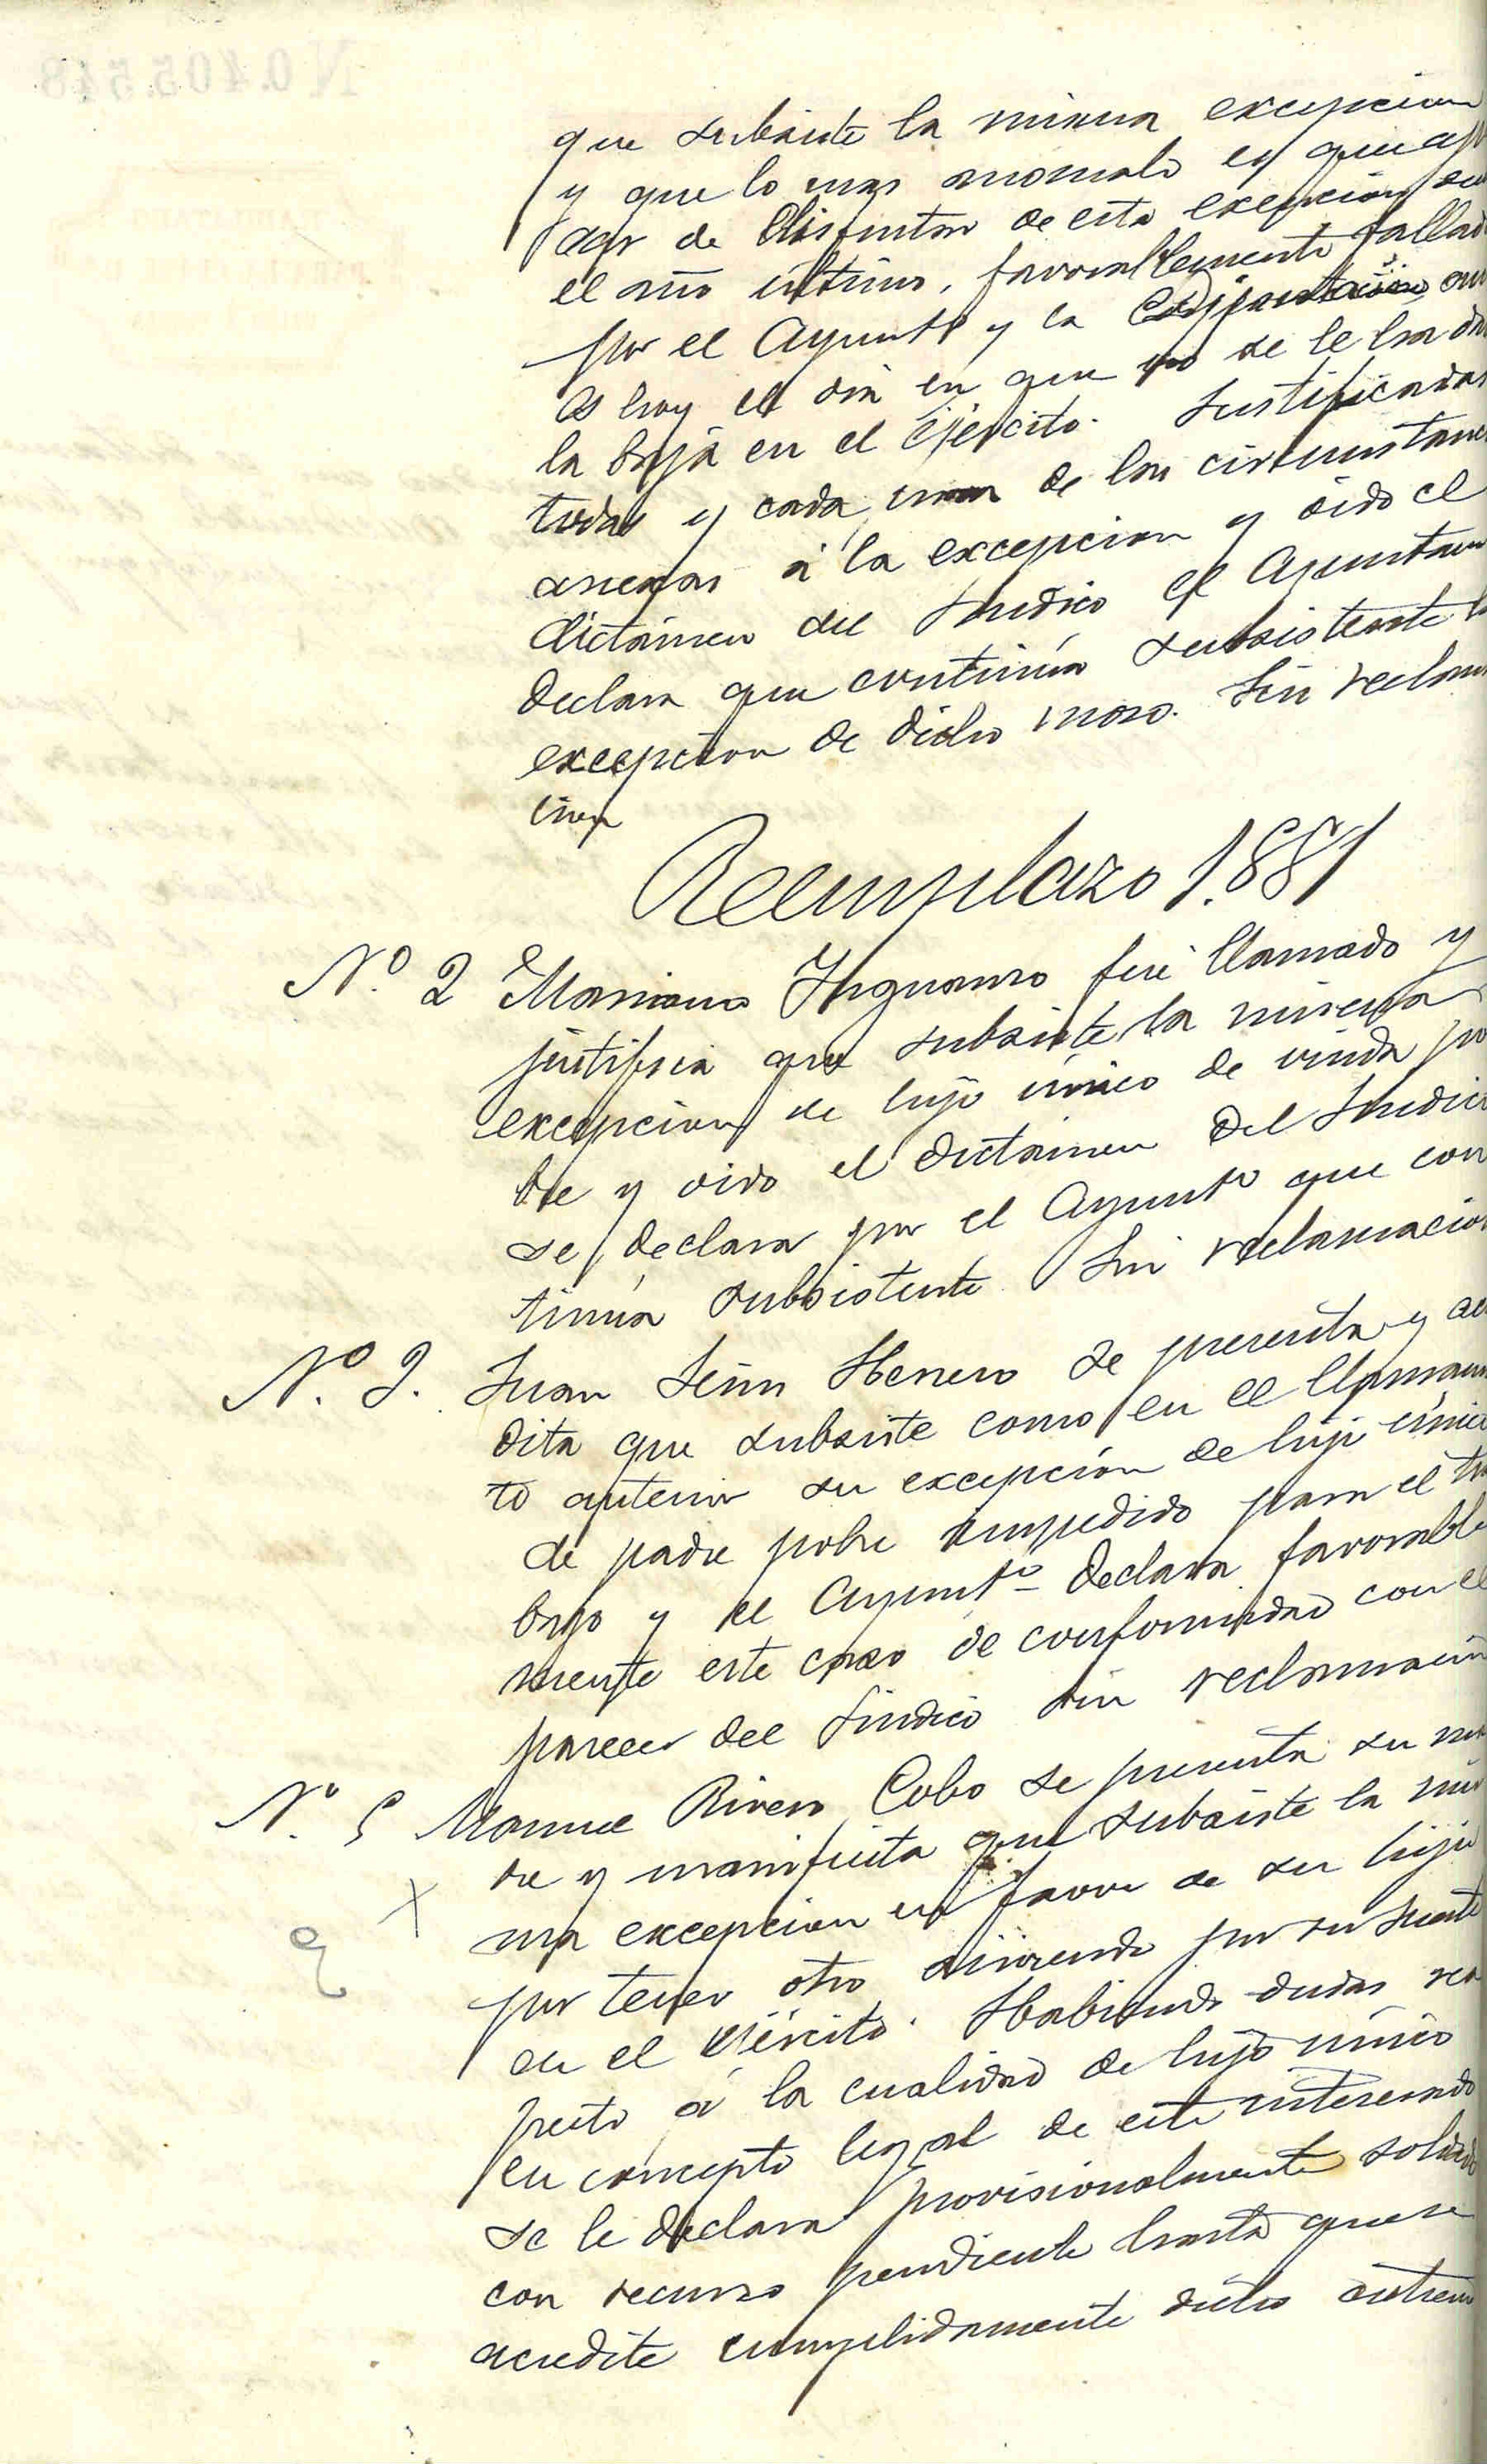 que subsiste la misma excepcion
y que lo mas anomalo es que ape
sar de disfrutar de esta exepcion
el año último, favorablemente fallad
por el Ayuntº y la
es hoy el dia en que no se le ha da
la baja en el Ejército. Justificadas
todas y cada una de las circunstanc
anexas á la excepcion y oido el
dictámen del Sindico el Ayuntam
declara que continúa subsistente l
excepcion de dicho mozo. Sin reclam
cion
Reemplazo 1.881
Nº. 2 Mariano Inguanzo fué llamado y
justifica que subsiste la misma
excepcion de hijo único de viuda po
bre y oido el dictámen del Sindic
se declara por el Ayuntº que con
tinúa subsistente. Sin reclamacion
Nº. 3. Juan Herrero se presenta y acre
dita que subsiste como en el llamam
to anterior su excepción de hijo único
de padre pobre impedido para el tra
bajo y el Ayuntº declara favorable
mente este caso de conformidad con el
parecer del Sindico sin reclamacion
Nº. 5 Manuel Rivero Cobo se presenta su ma
dre y manifiesta que subsiste la mis
ma excepcion en favor de su hijo
por tener otro sirviendo por su suerte
en el Ejército. Habiendo dudas res
pecto á la cualidad de hijo único
en concepto legal de este interesado
se le declara provisionalmente soldado
con recurso pendiente hasta que se
acredite cumplidamente dicho extremo
No.405.548